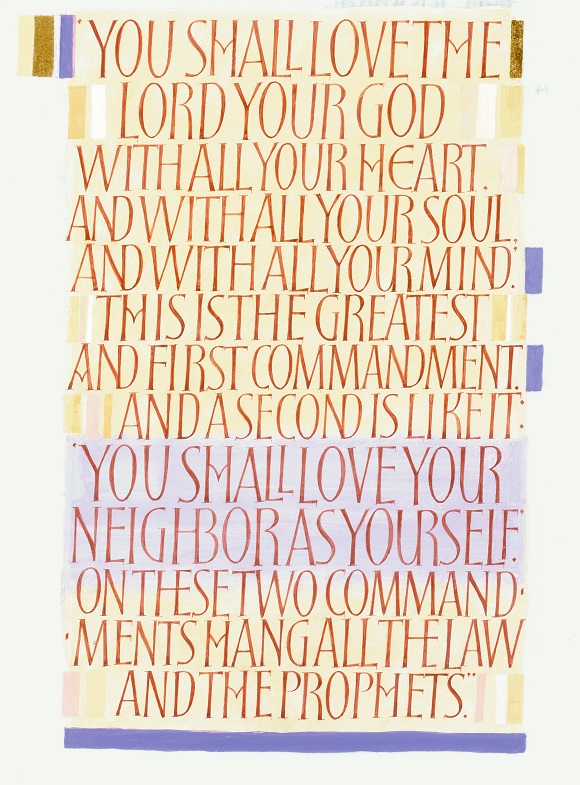 'YOU SHALL LOVE THE
LORD YOUR GOD
WITH ALL YOUR HEART,
AND WITH ALL YOUR SOUL,
AND WITH ALL YOUR MIND.'
THIS IS THE GREATEST
AND FIRST COMMANDMENT.
AND A SECOND IS LIKE IT:
'YOU SHALL LOVE YOUR
NEIGHBOR AS YOURSELF.'
ON THESE TWO COMMAND-
MENTS HANG ALL THE LAW
AND THE PROPHETS."